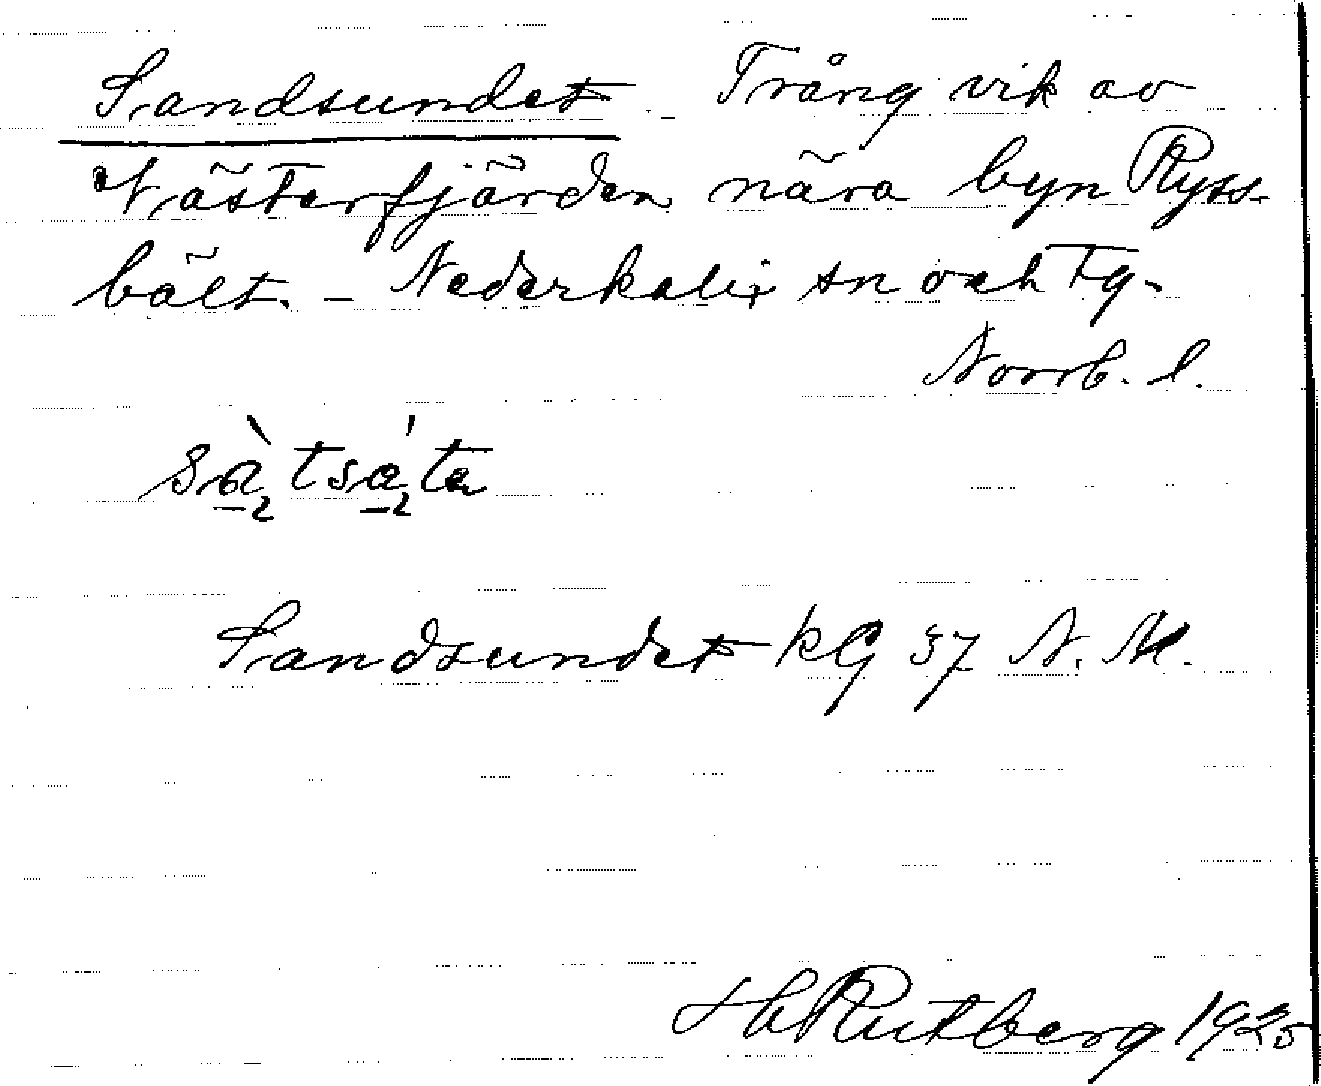 Sandsundet. Trång vik av
Västerfjärden nära byn Ryss-
bält. - Nederkalix sn och tg.
Norrb. l.
Sandsundet kG 57 N. M.
H Rutberg 1925